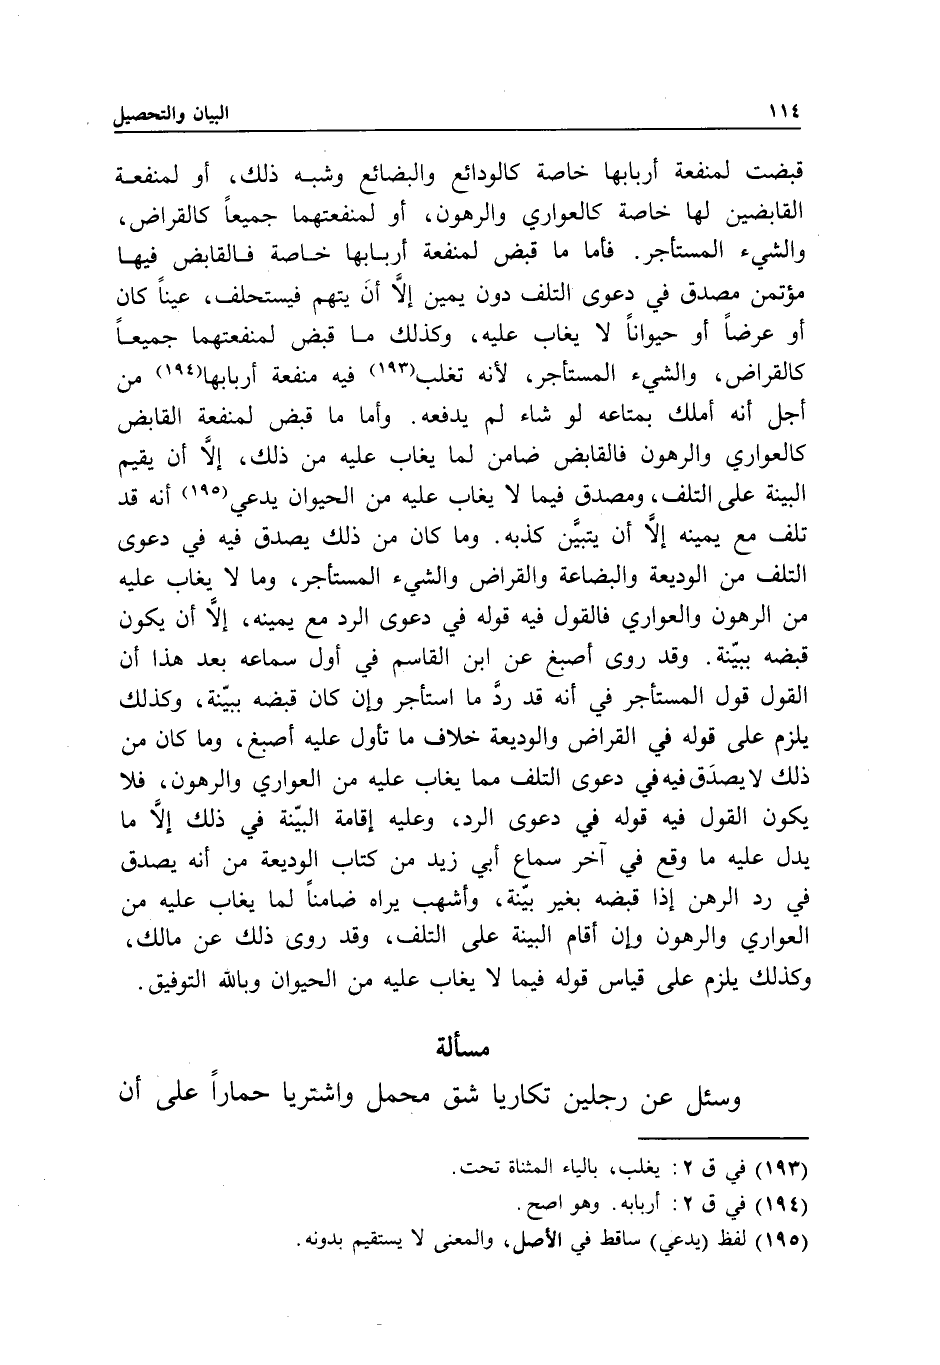 ١١٤ البيان والتحصيل
قبضت لمنفعة أربابها خاصة كالودائع والبضائع وشبه ذلك، أو لمنفعة
القابضين لها خاصة كالعواري والرهون، أو لمنفعتهما جميعاً كالقراض،
والشيء المستأجر. فأما ما قبض لمنفعة أربابها خاصة فالقابض فيها
مؤتمن مصدق في دعوى التلف دون يمين إلاَّ أنَ يتهم فيستحلف، عيناً كان
أو عرضاً أو حيواناً لا يغاب عليه، وكذلك ما قبض لمنفعتهما جميعاً
كالقراض، والشيء المستأجر، لأنه تغلب(١٩٣) فيه منفعة أربابها(١٩٤) من
أجل أنه أملك بمتاعه لو شاء لم يدفعه. وأما ما قبض لمنفعة القابض
كالعواري والرهون فالقابض ضامن لما يغاب عليه من ذلك، إلاَّ أن يقيم
البينة على التلف، ومصدق فيما لا يغاب عليه من الحيوان يدعي(١٩٥) أنه قد
تلف مع يمينه إلاَّ أن يتبيَّن كذبه. وما كان من ذلك يصدق فيه في دعوى
التلف من الوديعة والبضاعة والقراض والشيء المستأجر، وما لا يغاب عليه
من الرهون والعواري فالقول فيه قوله في دعوى الرد مع يمينه، إلاَّ أن يكون
قبضه ببيّنة. وقد روى أصبغ عن ابن القاسم في أول سماعه بعد هذا أن
القول قول المستأجر في أنه قد ردَّ ما استأجر وإن كان قبضه ببيّنة، وكذلك
يلزم على قوله في القراض والوديعة خلاف ما تأول عليه أصبغ، وما كان من
ذلك لا يصدَق فيه في دعوى التلف مما يغاب عليه من العواري والرهون، فلا
يكون القول فيه قوله في دعوى الرد، وعليه إقامة البيّنة في ذلك إلاَّ ما
يدل عليه ما وقع في آخر سماع أبي زيد من كتاب الوديعة من أنه يصدق
في رد الرهن إذا قبضه بغير بيّنة، وأشهب يراه ضامناً لما يغاب عليه من
العواري والرهون وإن أقام البينة على التلف، وقد روى ذلك عن مالك،
وكذلك يلزم على قياس قوله فيما لا يغاب عليه من الحيوان وبالله التوفيق.
مسألة
وسئل عن رجلين تكاريا شق محمل واشتريا حماراً على أن
(١٩٣) في ق ٢: يغلب، بالياء المثناة تحت.
(١٩٤) في ق ٢: أربابه. وهو اصح.
(١٩٥) لفظ (يدعي) ساقط في الأصل، والمعنى لا يستقيم بدونه.